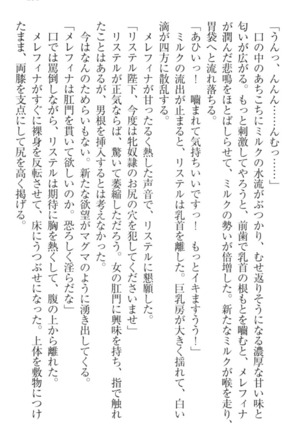 「うんっ、んんん……んむっ……」
口の中のあちこちにミルクの水流がぶつかり、むせ返りそうになる濃厚な甘い味と
匂いが広がる。もっと刺激してやろうと、前歯で乳首の根もとを嚙むと、メレフィナ
が潤んだ悲鳴をほとばしらせて、ミルクの勢いが倍増した。新たなミルクが喉を走り、
胃袋へと流れ落ちる。
「あひいっ！　嚙まれて気持ちいいですっ！　もっとイキますうう！」
ミルクの流出が止まると、リステルは乳首を離した。巨乳房が大きく揺れて、白い
滴が四方に散乱する。
メレフィナが甘ったるく熱した声音で、リステルに懇願した。
「リステル陛下、今度は牝奴隷のお尻の穴を犯してくださいませ」
リステルが正気ならば、驚いて萎縮しただろう。女の肛門に興味を持ち、指で触れ
たことはあるが、男根を挿入するとは考えなかった。
今はなんのためらいもない。新たな欲望がマグマのように湧き出してくる。
「メレフィナは肛門を貫いて欲しいのか。恐ろしく淫らだな」
口では罵倒しながら、リステルは期待に胸を熱くして、腹の上から離れた。
メレフィナがすぐに裸身を反転させて、床にうつぶせになった。上体を敷物につけ
たまま、両膝を支点にして尻を高く掲げる。